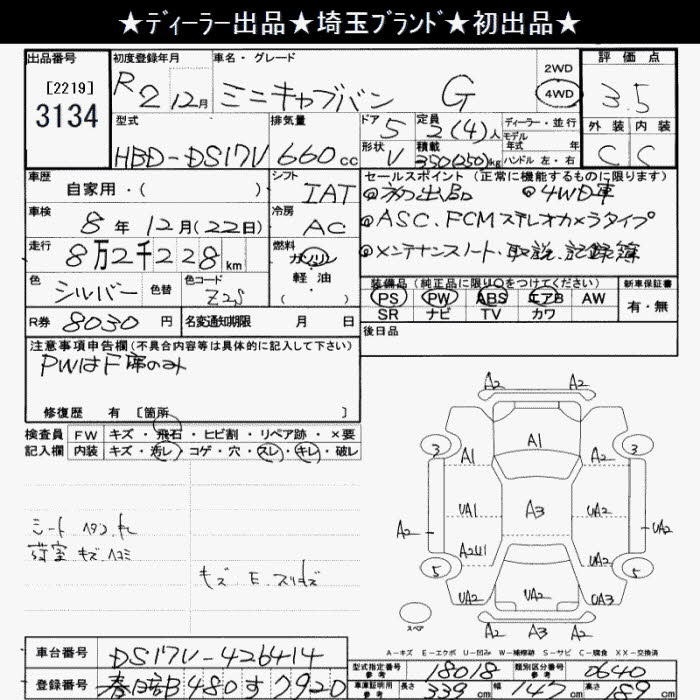 ★ディーラー出品★埼玉ブランド★初出品★
出品番号
[2219]
3134
初度登録年月
R2 12月
車名・グレード
ミニキャブバン G
2WD
4WD
評価点
3.5
型式
HBD-DS17V
排気量
660cc
ドア 5
形状 V
定員 2(4)人
積載 350(250)kg
ディーラー・並行
モデル
年式 年
ハンドル 左・右
外装 内装
C C
車歴
自家用・( )
シフト
IAT
セールスポイント(正常に機能するものに限ります)
◎初出品 ◎4WD車
◎ASC、FCMステレオカメラタイプ
◎メンテナンスノート・取説、記録簿
車検
8年12月(22日)
冷房
AC
走行
8万2千228km
燃料
ガソリン
軽油
( ・ )
色
シルバー
色替
色コード
装備品(純正品に限り○をつけてください)
PS PW ABS エアB AW
SR ナビ TV カワ
新車保証書
有・無
R券 8030円
名変通知期限 月 日
後日品
注意事項申告欄(不具合内容等は具体的に記入して下さい)
PWはF席のみ
修復歴 有 [箇所 ]
検査員 FW キズ・飛石・ヒビ割・リペア跡・×要
記入欄 内装 キズ・汚レ・コゲ・穴・スレ・キレ・破レ
シート
荷室 キズ、ヘコミ
キズ E、スリキズ
A2 A2
3 A1 3
A1 A2
UA1 A3 UA2
A2 UA2
A2U1 UA2
5 5
UA2 UA2 UA3
スペア
A2 A3 A2
A-キズ E-エクボ U-凹み W-補修跡 S-サビ C-腐食 XX-交換済
車台番号 DS17V-426414
登録番号 春日部 480 す 7920
型式指定番号
参考
18018
類別区分番号
参考
0640
車庫証明用
参考
長さ 339cm
幅 147cm
高さ